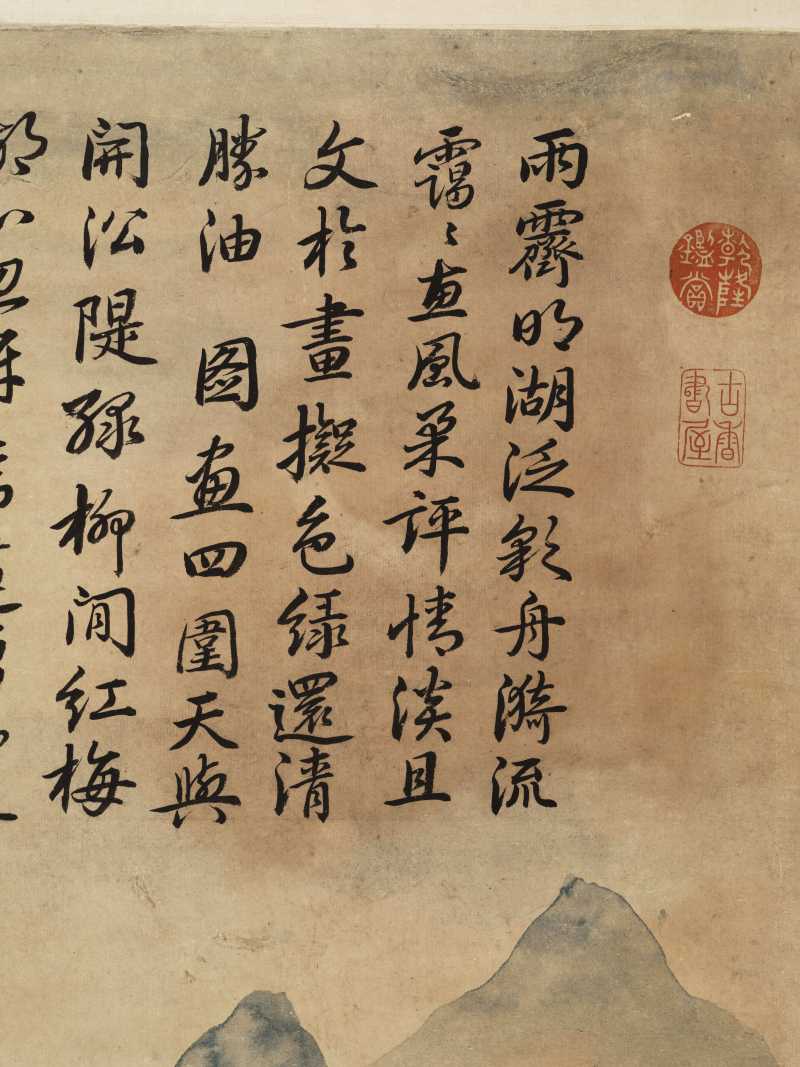 乾隆鑑賞
古香書屋
雨霽明湖泛彩舟漪流
靄〻惠風柔評情淡且
文於畫擬色綠還清
勝油 圖畫四圍天與
開沿隄綠柳間紅梅